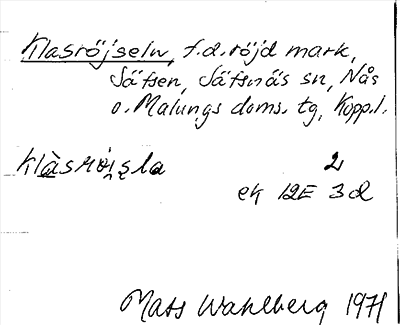 Klasröjseln, f.d. röjd mark,
Säfsen, Säfsnäs sn, Nås
o. Malungs doms. tg, Kopp.l.
Klàsröi̯s̥la 2
ek 12E 3d
Mats Wahlberg 1971